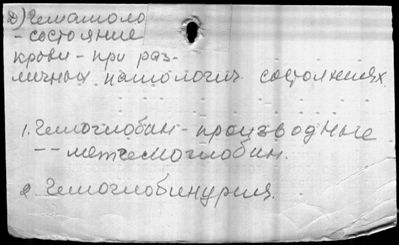 д) Гематоло
- состояние
крови - при раз-
личных патологич состояниях
1. Гемоглобин - производные
-- метгемоглобин.
2. Гемоглобинурия.